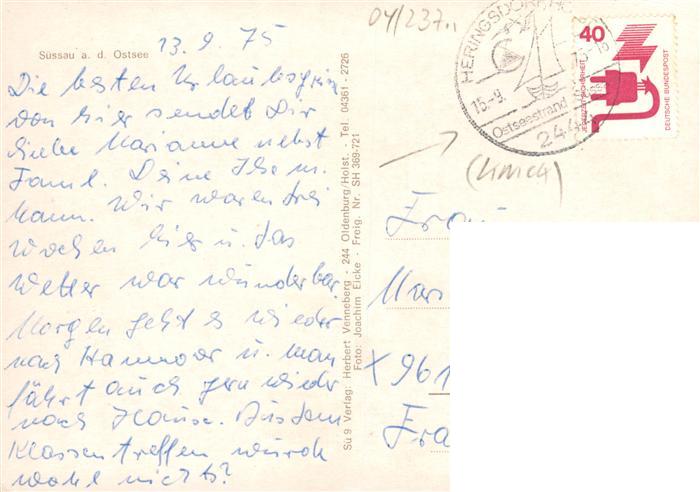 04/237
Süssau a. d. Ostsee
13. 9. 75
Die besten Urlaubsgrüße
von hier sendet Dir
liebe Marianne nebst
Faml. Deine Ilse m.
Mann. Wir waren drei
Wochen hier u. das
Wetter war wunderbar
Morgen geht es wieder
nach Hannover u. man
fährt auch gern wieder
nach Hause. Aus dem
Klassentreffen wurde
wohl nichts?
Sü 9 Verlag: Herbert Venneberg - 244 Oldenburg/Holst. - Tel. 04361 - 2726
Foto: Joachim Eicke - Freig. Nr. SH 369-721
HERINGSDORF
15.-9.
Ostseestrand
244
40
JEDERZEIT SICHERHEIT
DEUTSCHE BUNDESPOST
Frau
Mari
X 961
Fra